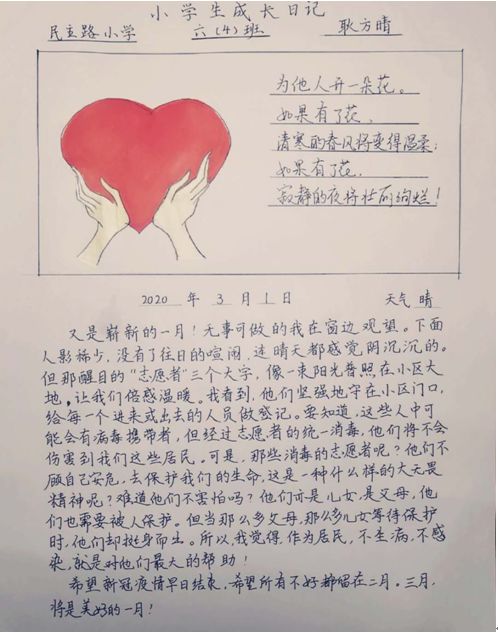 小学生成长日记
民主路小学 六(4)班 耿方晴
为他人开一朵花。
如果有了花,
清寒的春风将变得温柔;
如果有了花,
寂静的夜将壮丽绚烂!
2020 年 3 月 1 日 天气 晴
又是崭新的一月!无事可做的我在窗边观望。下面
人影稀少,没有了往日的喧闹,连晴天都感觉阴沉沉的。
但那醒目的“志愿者”三个大字,像一束阳光普照在小区大
地,让我们倍感温暖。我看到,他们坚强地守在小区门口,
给每一个进来或出去的人员做登记。要知道,这些人中可
能会有病毒携带者,但经过志愿者的统一消毒,他们将不会
伤害到我们这些居民。可是,那些消毒的志愿者呢?他们不
顾自己安危,去保护我们的生命,这是一种什么样的大无畏
精神呢?难道他们不害怕吗?他们亦是儿女,是父母,他
们也需要被人保护。但当那么多父母,那么多儿女等待保护
时,他们却挺身而出。所以,我觉得作为居民,不生病,不感
染,就是对他们最大的帮助!
希望新冠疫情早日结束,希望所有不好都留在二月。三月,
将是美好的一月!